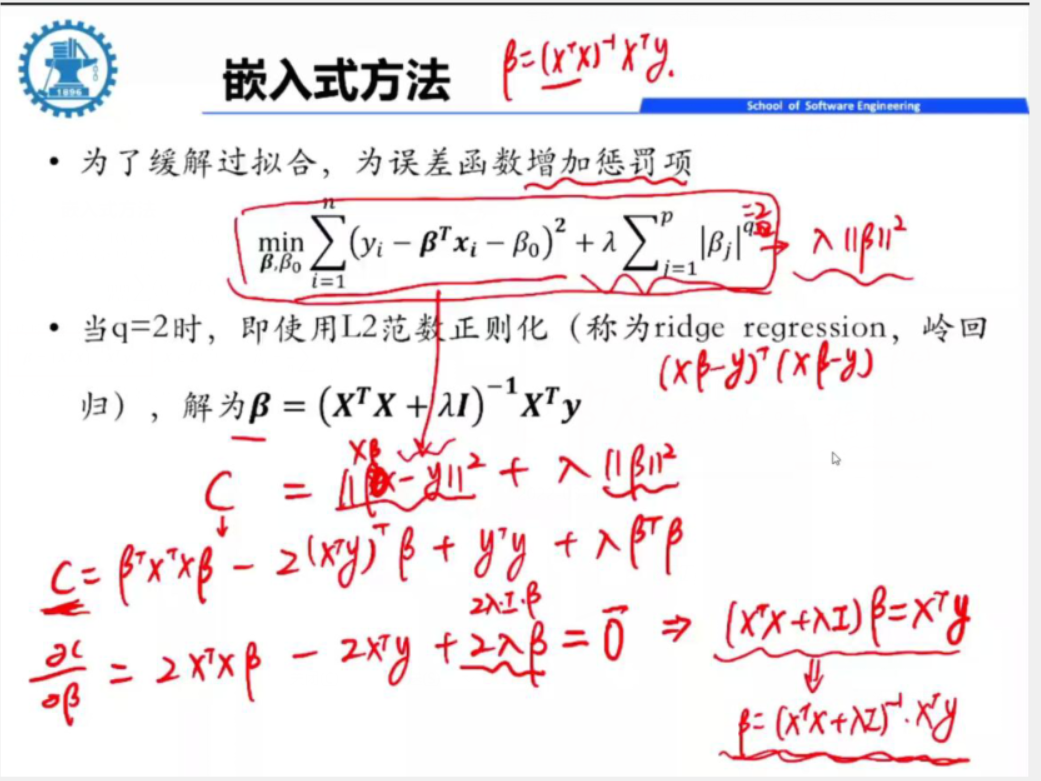 1896
嵌入式方法
β=(XᵀX)⁻¹Xᵀy.
School of Software Engineering
• 为了缓解过拟合，为误差函数增加惩罚项
min_{β,β₀} ∑_{i=1}^{n} (yᵢ − βᵀxᵢ − β₀)² + λ ∑_{j=1}^{p} |βⱼ|^q =2 → λ||β||²
• 当q=2时，即使用L2范数正则化（称为ridge regression，岭回
(Xβ-y)ᵀ(Xβ-y)
归），解为β = (XᵀX + λI)⁻¹Xᵀy
Xβ
C = ||β x - y||² + λ||β||²
C = βᵀXᵀXβ - 2(Xᵀy)ᵀβ + yᵀy + λβᵀβ
2λ·I·β
∂C/∂β = 2XᵀXβ - 2Xᵀy + 2λβ = 0⃗ ⇒ (XᵀX+λI)β=Xᵀy
⇓
β=(XᵀX+λI)⁻¹·Xᵀy